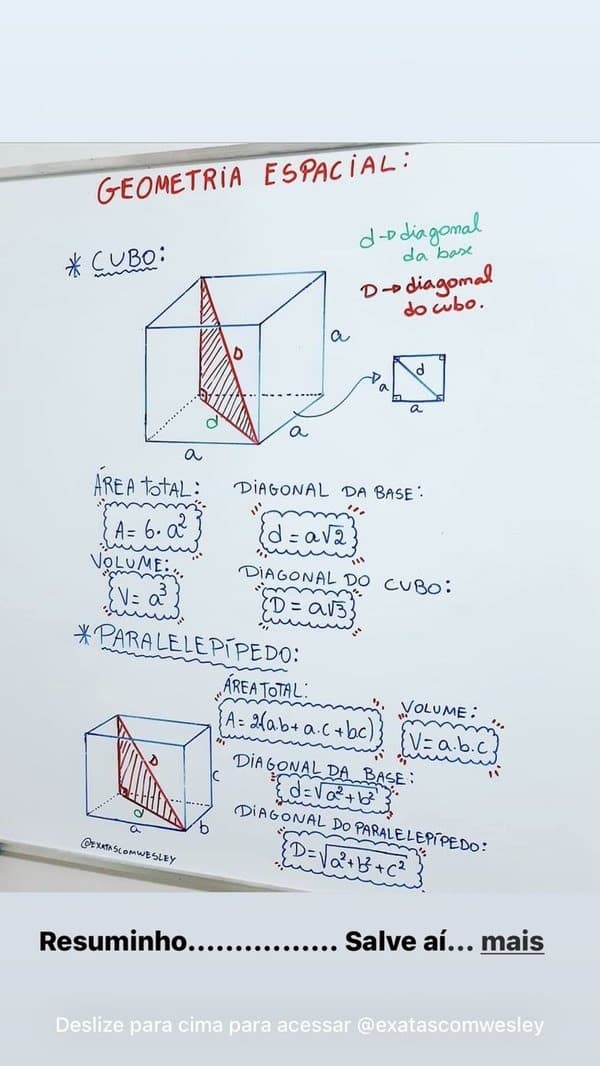 GEOMETRIA ESPACIAL:
* CUBO:
d→diagonal
da base
D→diagonal
do cubo.
a
D
d
a
a
d
a
a
ÁREA TOTAL:
A= 6·a²
DIAGONAL DA BASE:
d = a√2
VOLUME:
V= a³
DIAGONAL DO CUBO:
D = a√3
* PARALELEPÍPEDO:
ÁREA TOTAL:
A= 2(a.b+a.c+bc)
VOLUME:
V=a.b.c
DIAGONAL DA BASE:
d=√a²+b²
DIAGONAL DO PARALELEPÍPEDO:
D=√a²+b²+c²
D
c
d
a
b
@EXATASCOMWESLEY
Resuminho................ Salve aí... mais
Deslize para cima para acessar @exatascomwesley